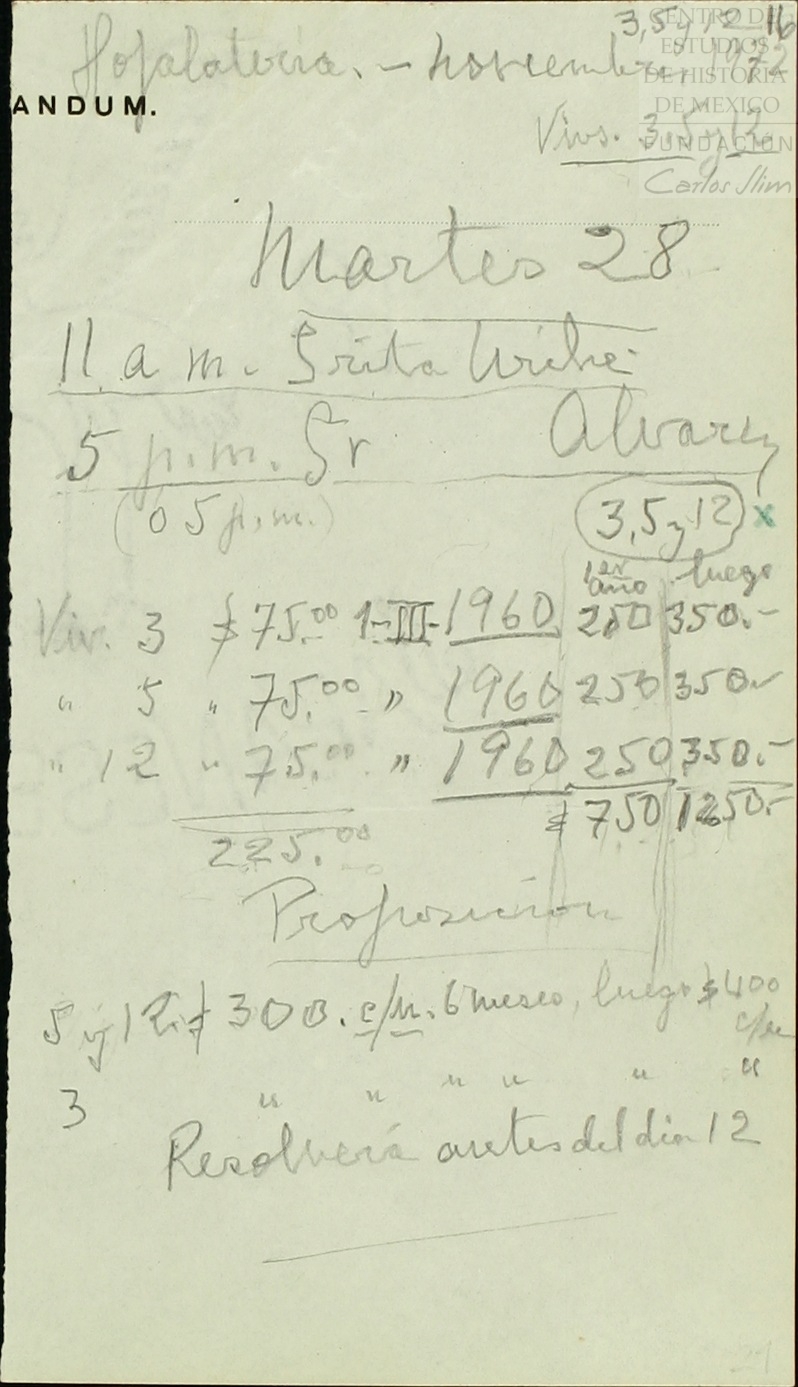 3,5 y 12 16
CENTRO DE
ESTUDIOS
DE HISTORIA
DE MEXICO
FUNDACIÓN
Carlos Slim
Hojalatería. - noviembre, 1972
ANDUM.
Vivs. 3, 5 y 12
Martes 28
11 a m. Srita Uribe.
5 p.m. Sr Alvarez
(o 5 p.m.)
3,5 y 12 x
1er año luego
Viv. 3 $ 75.00 1-III-1960 250 350.-
" 5 " 75.00 " 1960 250 350.-
" 12 " 75.00 " 1960 250 350.-
225.00 $ 750 1250.-
Proposición
5 y 12 $ 300. c/u. 6 meses, luego $ 400 c/u
3 " " " " " "
Resolverá antes del dia 12
21